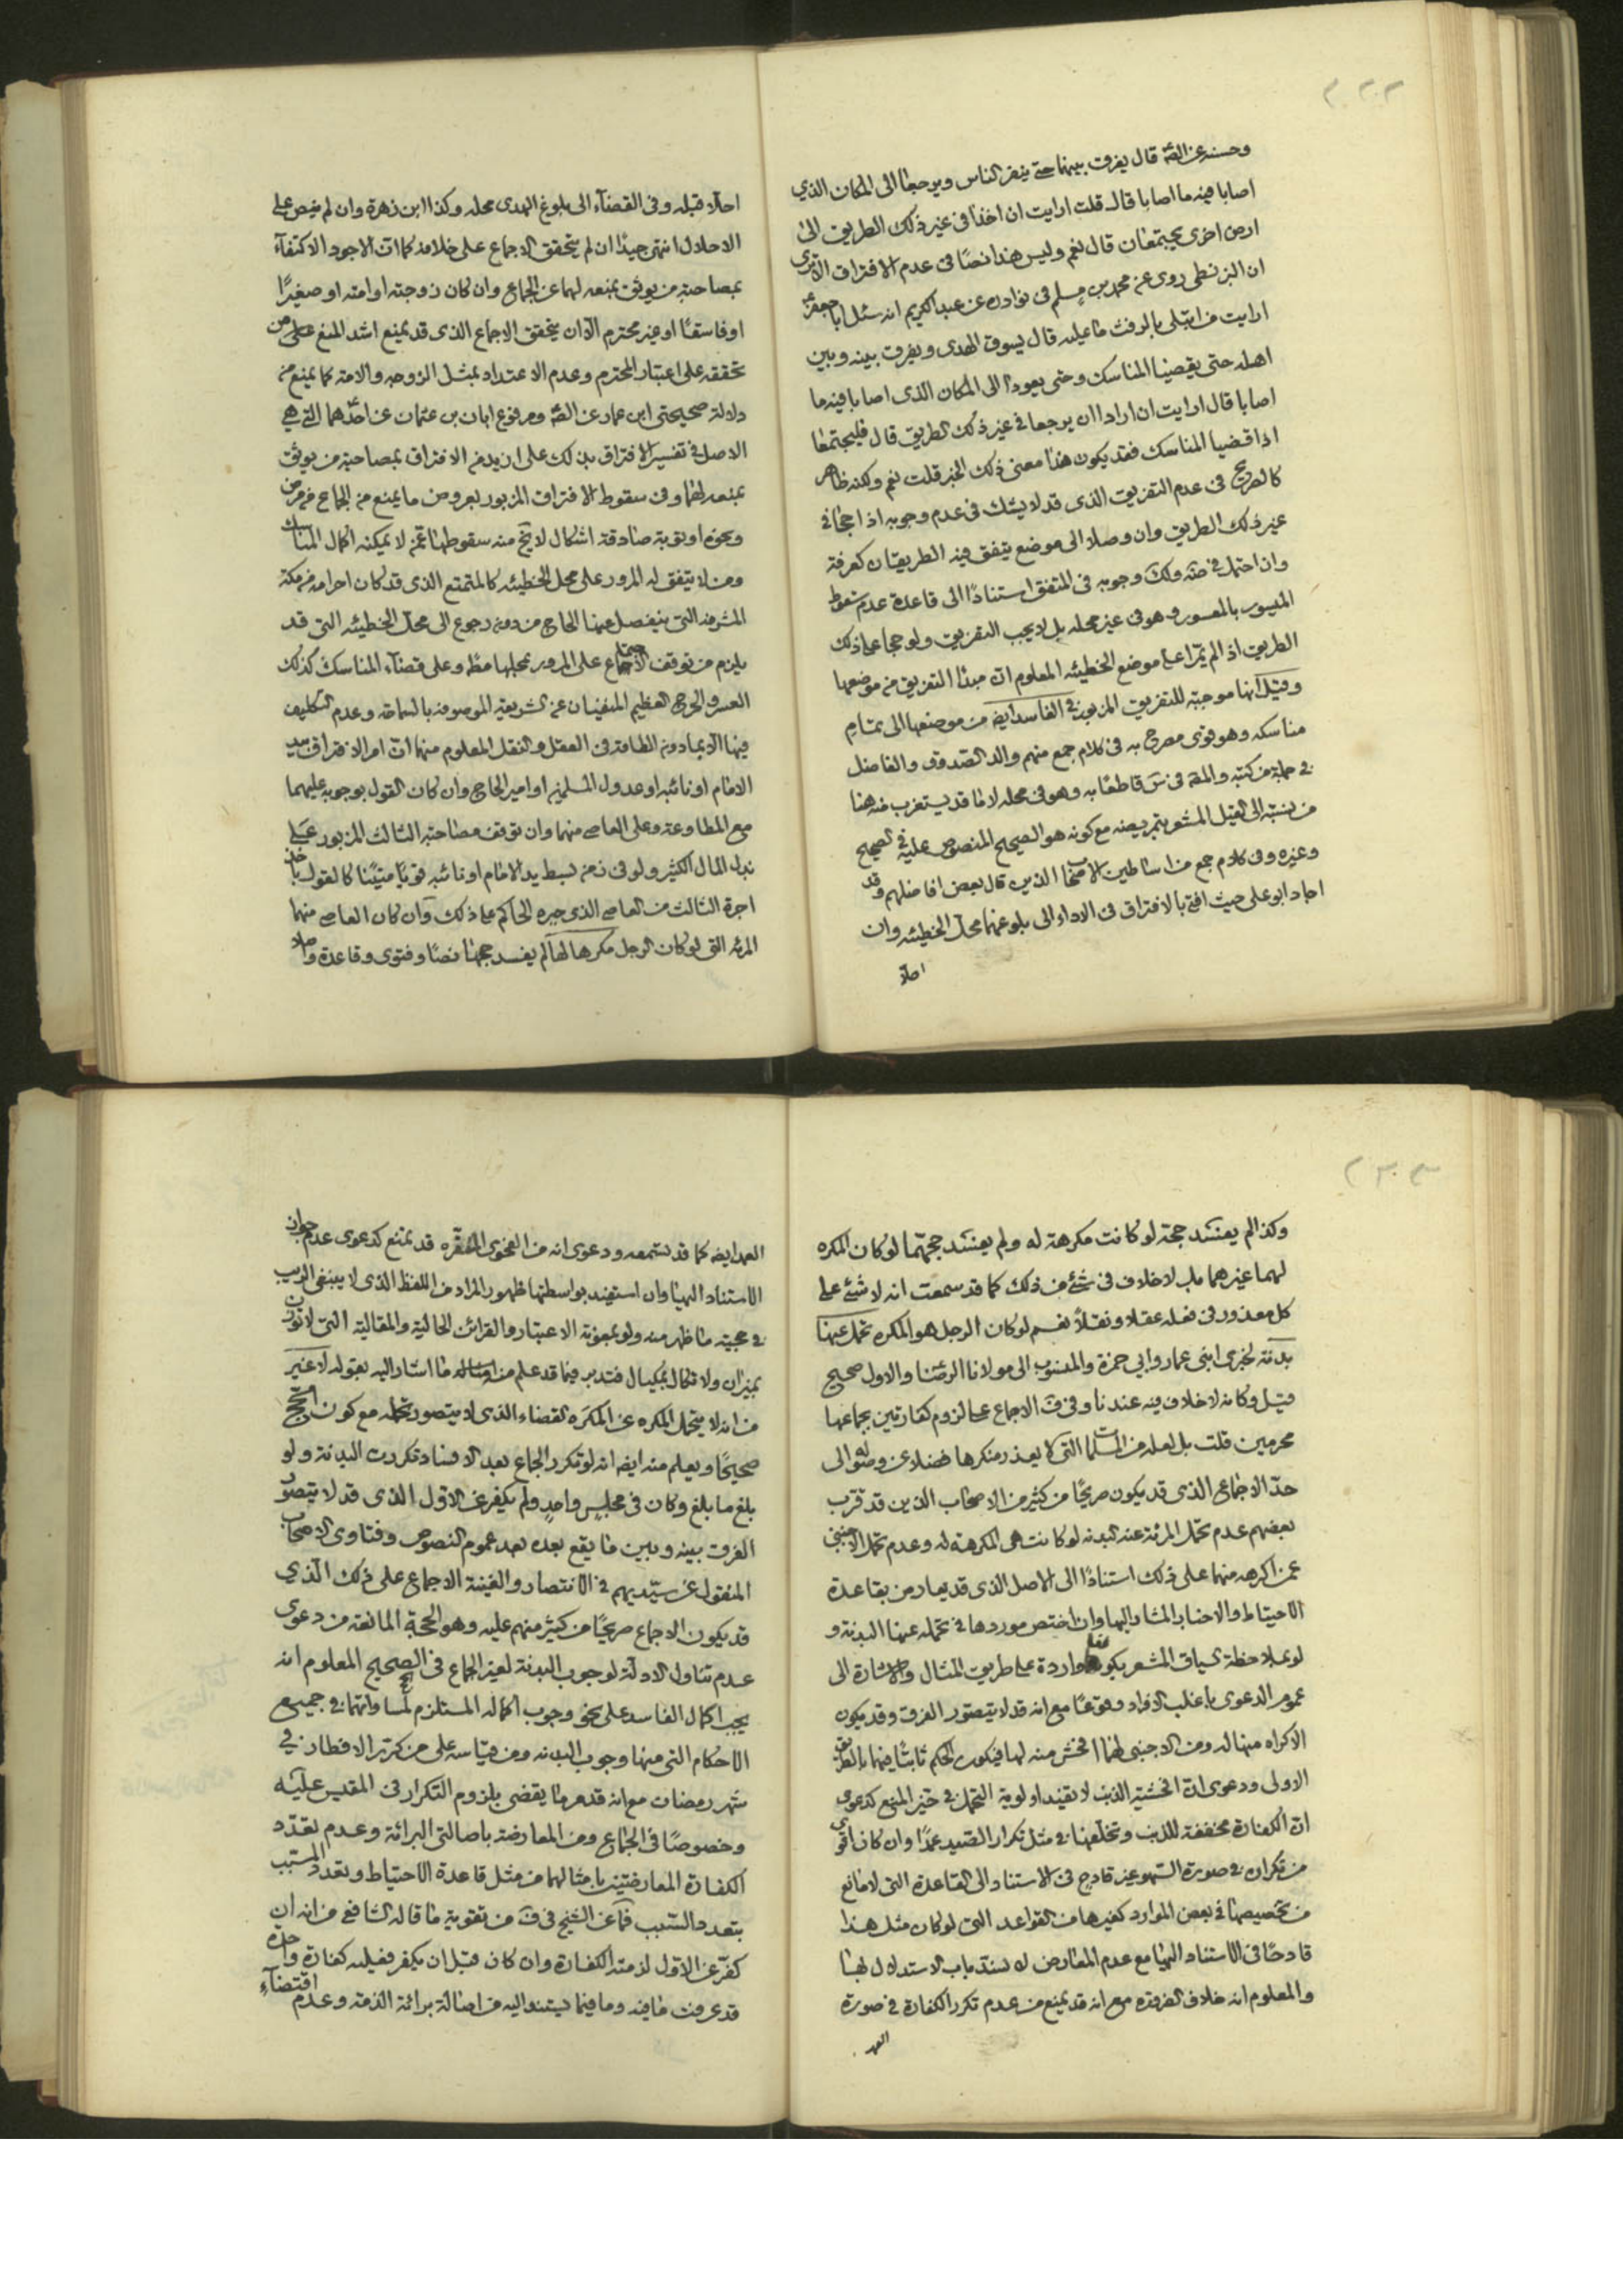 ٢٠٢
وحسنه عن الصة قال يفرق بينهما حتى ينفر الناس ويرجعا الى المكان الذي
اصابا فيه ما اصابا قال قلت ارايت ان اخذا في غير ذلك الطريق الى
ارض اخرى يجتمعان قال نعم وليس هذا نصا في عدم الافتراق الا ترى
ان البزنطي روى عن محمد بن مسلم في نوادره عن عبد الكريم انه سئل ابا جعفر
ارايت من ابتلى بالرفث ما عليه قال يسوق الهدى ويفرق بينه وبين
اهله حتى يقضيا المناسك وحتى يعودا الى المكان الذي اصابا فيه ما
اصابا قال ارايت ان ارادا ان يرجعا في غير ذلك الطريق قال فليجتمعا
اذا قضيا المناسك فقد يكون هذا معنى ذلك الخبر قلت نعم ولكنه ظاهر
كالصريح في عدم التفريق الذي قد لا يشك في عدم وجوبه اذا حجا في
غير ذلك الطريق وان وصلا الى موضع يتفق فيه الطريقان كعرفة
وان احتمل في وجوبه في المتفق استنادا الى قاعدة عدم سقوط
الميسور بالمعسور وهو في غير محله بل لا يجب التفريق ولو حجا على ذلك
الطريق اذا لم يمرا على موضع الخطيئه المعلوم ان مبدأ التفريق من موضعها
وقيل انها موجبة للتفريق المزبور في الفاسد ايضا من موضعها الى تمام
مناسكه وهو قوى مصرح به في كلام جمع منهم والد الصدوق والفاضل
في جملة من كتبه والمصة في قاطعا به وهو في محله لا ما قد يستغرب منه هنا
من نسبته الى القيل المشعر بتمريضه مع كونه هو الصحيح المنصوص عليه في صحيح
وغيره وفى كلام جمع من اساطين الاصحاب الذين قال بعض افاضلهم وقد
اجاد ابو على حيث افتى بالافتراق في الاداء الى بلوغهما محل الخطيئه وان
احلا
احلا قبله وفى القضآء الى بلوغ الهدى محله وكذا ابن زهرة وان لم ينص على
الاحلال انتهى جيدا ان لم يتحقق الاجماع على خلافه كما ان الاجود الاكتفآء
بمصاحبة من يوثق بمنعه لهما عن الجماع وان كان زوجته او امته او صغيرًا
او فاسقًا او غير محترم الا ان يتحقق الاجماع الذي قد يمنع اشد المنع على من
تحققه على اعتبار المحترم وعدم الاعتداد بمثل الزوجه والامة كما يمنع من
دلالة صحيحتى ابن عمار عن الصة ومرفوع ابان بن عثمان عن احدهما التي هي
الاصل في تفسير الافتراق بذلك على ان يدفع الافتراق بمصاحبة من يوثق
بمنعه لهما وفى سقوط الافتراق المزبور بعروض ما يمنع من الجماع من مرض
ونحوه او توبة صادقة اشكال لا يتجه منه سقوطها عمن لا يمكنه اكمال المناسك
ومن لا يتفق له المرور على محل الخطيئه كالمتمتع الذي قد كان احرامه من مكة
المشرفه التي ينفصل عنها الحاج من دون رجوع الى محل الخطيئه التي قد
يلزم من توقف الاجتماع على المرور بمحلها مطا وعلى قضآء المناسك كذلك
العسر والحرج العظيم المنفيان عن الشريعة الموصوفه بالسماحة وعدم التكليف
فيها الا بما دون الطاقة في العقل والنقل المعلوم منهما ان امر الافتراق بيد
الامام او نائبه او عدول المسلمين او امير الحاج وان كان القول بوجوبه عليهما
مع المطاوعة وعلى العاصى منهما وان توقف مصاحبة الثالث المزبور على
بذل المال الكثير ولو في زمن بسط يد الامام او نائبه قويًا متينًا كالقول باخذ
اجرة الثالث من العاصى الذي جبره الحاكم على ذلك وان كان العاصى منهما
المرئه التي لو كان الرجل مكرها لها لم يفسد حجها نصًا وفتوى وقاعدة واصلا
٢٠٣
وكذا لم يفسد حجه لو كانت مكرهة له ولم يفسد حجهما لو كان المكره
لهما غيرهما بل لا خلاف في شئ من ذلك كما قد سمعت انه لا شئ على
كل معذور في فعله عقلا ونقلاً نعم لو كان الرجل هو المكره تحمل عنها
بدنة لخبرى ابنى عمار وابي حمزة والمنسوب الى مولانا الرضا والاول صحيح
قيل وكانه لا خلاف فيه عندنا وفى ف الاجماع على لزوم كفارتين بجماعها
محرمين قلت بل لعله من المسلمات التي لا يعذر منكرها فضلا عن وصوله الى
حد الاجماع الذي قد يكون صريحًا من كثير من الاصحاب الذين قد قرب
بعضهم عدم تحمل المرئة عنه البدنه لو كانت هى المكرهة له وعدم تحمل الاجنبى
عمن اكرهه منهما على ذلك استنادًا الى الاصل الذي قد يعارض بقاعدة
الاحتياط والاخبار المشار اليها وان اختص موردها في تحمله عنها البدنة و
لو بملاحظة السياق المشعر بكونها واردة على طريق المثال والاشارة الى
عموم الدعوى باغلب الافراد وقوعًا مع انه قد لا يتصور الفرق وقد يكون
الاكراه منها له ومن الاجنبى لهما افحش منه لها فيكون الحكم ثابتًا فيها بالطريق
الاولى ودعوى ان افحشية الذنب لا تفيد اولوية التحمل في حيز المنع كدعوى
ان الكفارة مخففة للذنب وتخلفها في مثل تكرار الصيد عمدًا وان كان اقوى
من تكراره في صورة السهو غير قادح في الاستناد الى القاعدة التي لا مانع
من تخصيصها في بعض الموارد كغيرها من القواعد التي لو كان مثل هذا
قادحًا في الاستناد اليها مع عدم المعارض له لسد باب الاستدلال لها
والمعلوم انه خلاف الضرورة مع انه قد يمنع من عدم تكرر الكفارة في صورة
العمد
العمد ايضا كما قد تسمعه ودعوى انه من الفحوى المقرره قد يمنع كدعوى عدم جواز
الاستناد اليها وان استفيد بواسطتها ظهور المراد من اللفظ الذي لا ينبغى الريب
في حجية ما ظهر منه ولو بمعونة الاعتبار والقرائن الحالية والمقالية التي لا توزن
بميزان ولا تكال بمكيال فتدبر فيما قد علم منه ما اشار اليه بقوله لا غير
من انه لا يتحمل المكره عن المكرَه القضاء الذي لا يتصور تحمله مع كون الحج
صحيحًا ويعلم منه ايضا انه لو تكرر الجماع بعد الافساد تكررت البدنة ولو
بلغ ما بلغ وكان في مجلسٍ واحدٍ ولم يكفر عن الاول الذي قد لا يتصور
الفرق بينه وبين ما يقع بعده بعد عموم النصوص وفتاوى الاصحاب
المنقول عن سيديهم في الانتصار والغنية الاجماع على ذلك الذي
قد يكون الاجماع صريحًا من كثير منهم عليه وهو الحجة المانعة من دعوى
عدم تناول الادلة لوجوب البدنة لغير الجماع في الحج الصحيح المعلوم انه
يجب اكمال الفاسد على نحو وجوب اكماله المستلزم لمساواتهما في جميع
الاحكام التي منها وجوب البدنه ومن قياسه على من كرر الافطار في
شهر رمضان مع انه قد مر ما يقضى بلزوم التكرار في المقيس عليه
وخصوصًا في الجماع ومن المعارضة باصالتى البرائة وعدم تعدد
الكفارة المعارضتين بامثالهما من مثل قاعدة الاحتياط وتعدد المسبب
بتعدد السبب فما عن الشيخ في ف من تقوية ما قاله الشافعى من انه ان
كفر عن الاول لزمته الكفارة وان كان قبل ان يكفر فعليه كفارة واحدة
قد عرفت ما فيه وما فيما يستند اليه من اصالة برائة الذمة وعدم اقتضآء